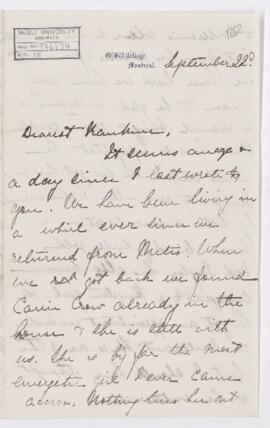 McGILL UNIVERSITY
ARCHIVES
ACC. NO. 976/34
REF. 15
1882
McGill College,
Montreal.
September 22d
Dearest Rankine,
It seems an age &
a day since I last wrote to
you. We have been living in
a whirl ever since we
returned from Metis. When
we got back we found
Crow already in the
house & she is still with
us. She is by far the most
energetic girl I ever came
across. Nothing tires her out